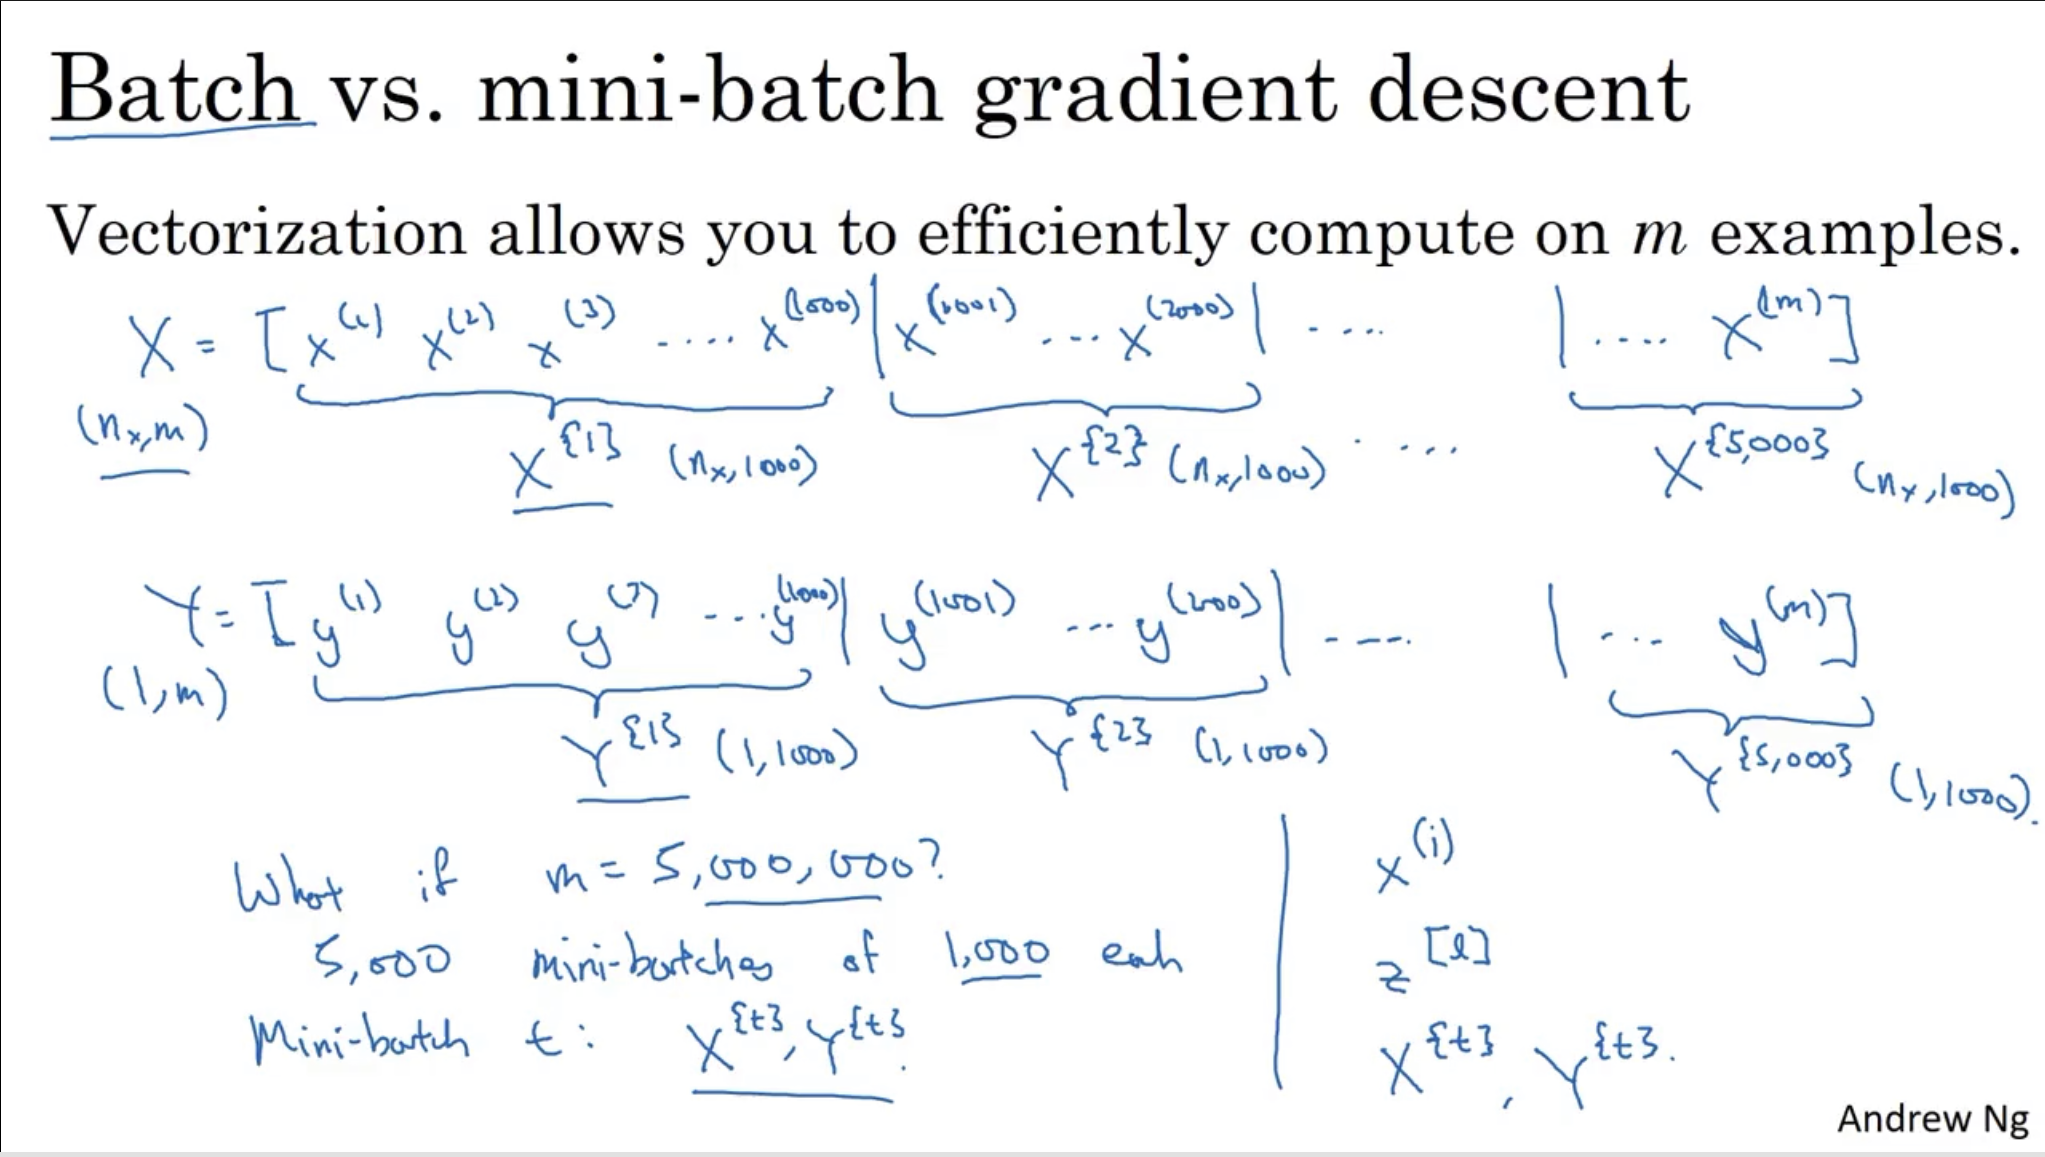 Batch vs. mini-batch gradient descent
Vectorization allows you to efficiently compute on m examples.
X = [x^(1) x^(2) x^(3) .... x^(1000) | x^(1001) ... x^(2000) | .... | .... x^(m)]
(n_x, m) X^{1} (n_x, 1000) X^{2} (n_x, 1000) .... X^{5,000} (n_x, 1000)
Y = [y^(1) y^(2) y^(3) ... y^(1000) | y^(1001) ... y^(2000) | .... | ... y^(m)]
(1, m) Y^{1} (1, 1000) Y^{2} (1, 1000) Y^{5,000} (1, 1000).
What if m = 5,000,000?
5,000 mini-batches of 1,000 each
Mini-batch t: X^{t}, Y^{t}.
x^(i)
z^[l]
X^{t}, Y^{t}.
Andrew Ng